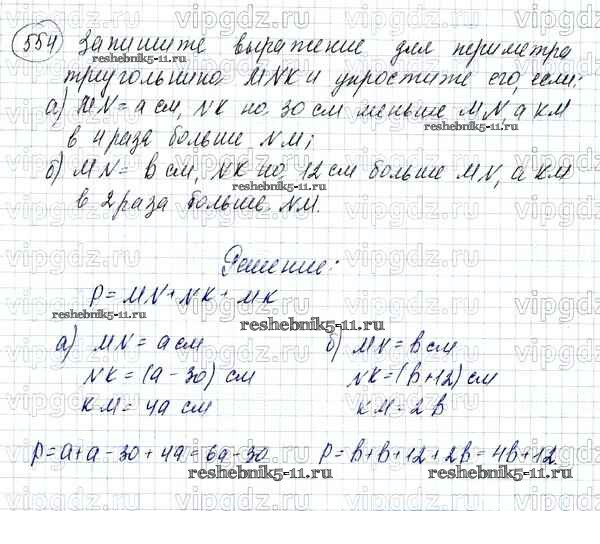 554 Запишите выражение для периметра
треугольника MNK и упростите его, если:
а) MN = a см, NK на 30 см меньше MN, а KM
в 4 раза больше NM;
б) MN = b см, NK на 12 см больше MN, а KM
в 2 раза больше NM.
Решение:
P = MN + NK + MK
а) MN = a см
NK = (a - 30) см
KM = 4a см
P = a + a - 30 + 4a = 6a - 30
б) MN = b см
NK = (b + 12) см
KM = 2b
P = b + b + 12 + 2b = 4b + 12
vipgdz.ru
reshebnik5-11.ru